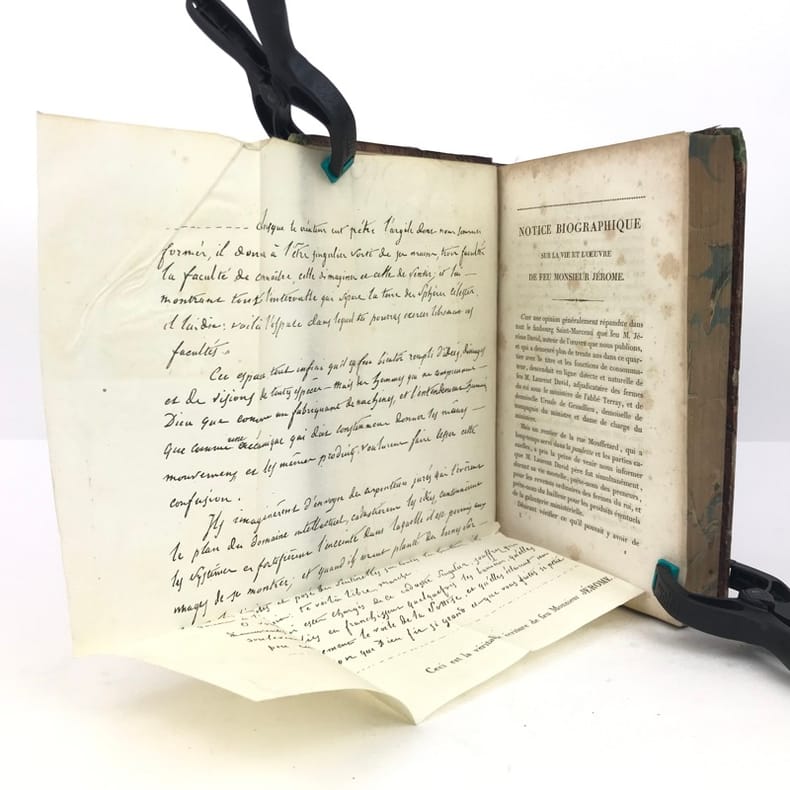 Lorsque le créateur eut pétri l'argile dont nous sommes
formés, il donna à l'être singulier sorti de ses mains trois facultés
la faculté de connaître celle d'imaginer et celle de sentir, et lui
montrant tout l'intervalle qui sépare la terre des Sphères célestes,
il lui dit: voilà l'espace dans lequel tu pourras exercer librement ces
facultés.
Cet espace tout infini qu'il est fut bientôt rempli d'Idées, d'images
et de visions de toute espèce – mais les hommes qui ne comprennent
Dieu que comme un fabriquant de machines, et l'entendement humain
que comme une mécanique qui doit constamment donner les mêmes
mouvemens et les mêmes produits, voulurent faire cesser cette
confusion.
Ils imaginèrent d'envoyer des arpenteurs jurés qui levèrent
le plan du domaine intellectuel, cadastrèrent les idées, cantonnèrent
les systèmes et fortifièrent l'enceinte dans laquelle il est permis aux
images de se montrer, et quand ils eurent planté des bornes
ces franchisseur quelquefois les barrières qu'elles
le voile de la
que Dieu fit si grand et que vous faites si petit.
Ceci est la véritable écriture de feu Monsieur JÉROME.
NOTICE BIOGRAPHIQUE
SUR LA VIE ET L'ŒUVRE
DE FEU MONSIEUR JÉROME.
C'est une opinion généralement répandue dans
tout le faubourg Saint-Marceau que feu M. Jé-
rôme David, auteur de l'œuvre que nous publions,
et qui a demeuré plus de trente ans dans ce quar-
tier avec le titre et les fonctions de consomma-
teur, descendait en ligne directe et naturelle de
feu M. Laurent David, adjudicataire des fermes
du roi sous le ministère de l'abbé Terray, et de
demoiselle Ursule de Grandlieu, demoiselle de
compagnie du ministre et dame de charge du
ministère.
Mais un rentier de la rue Mouffetard, qui a
long-temps servi dans le pandecte et les parties ca-
suelles, a pris la peine de venir nous informer
que M. Laurent David père fut simultanément,
durant sa vie mortelle, prête-nom des preneurs,
pour les revenus ordinaires des fermes du roi, et
prête-nom du bailleur pour les produits éventuels
de la galanterie ministérielle.
Désirant vérifier ce qu'il pouvait y avoir de
1